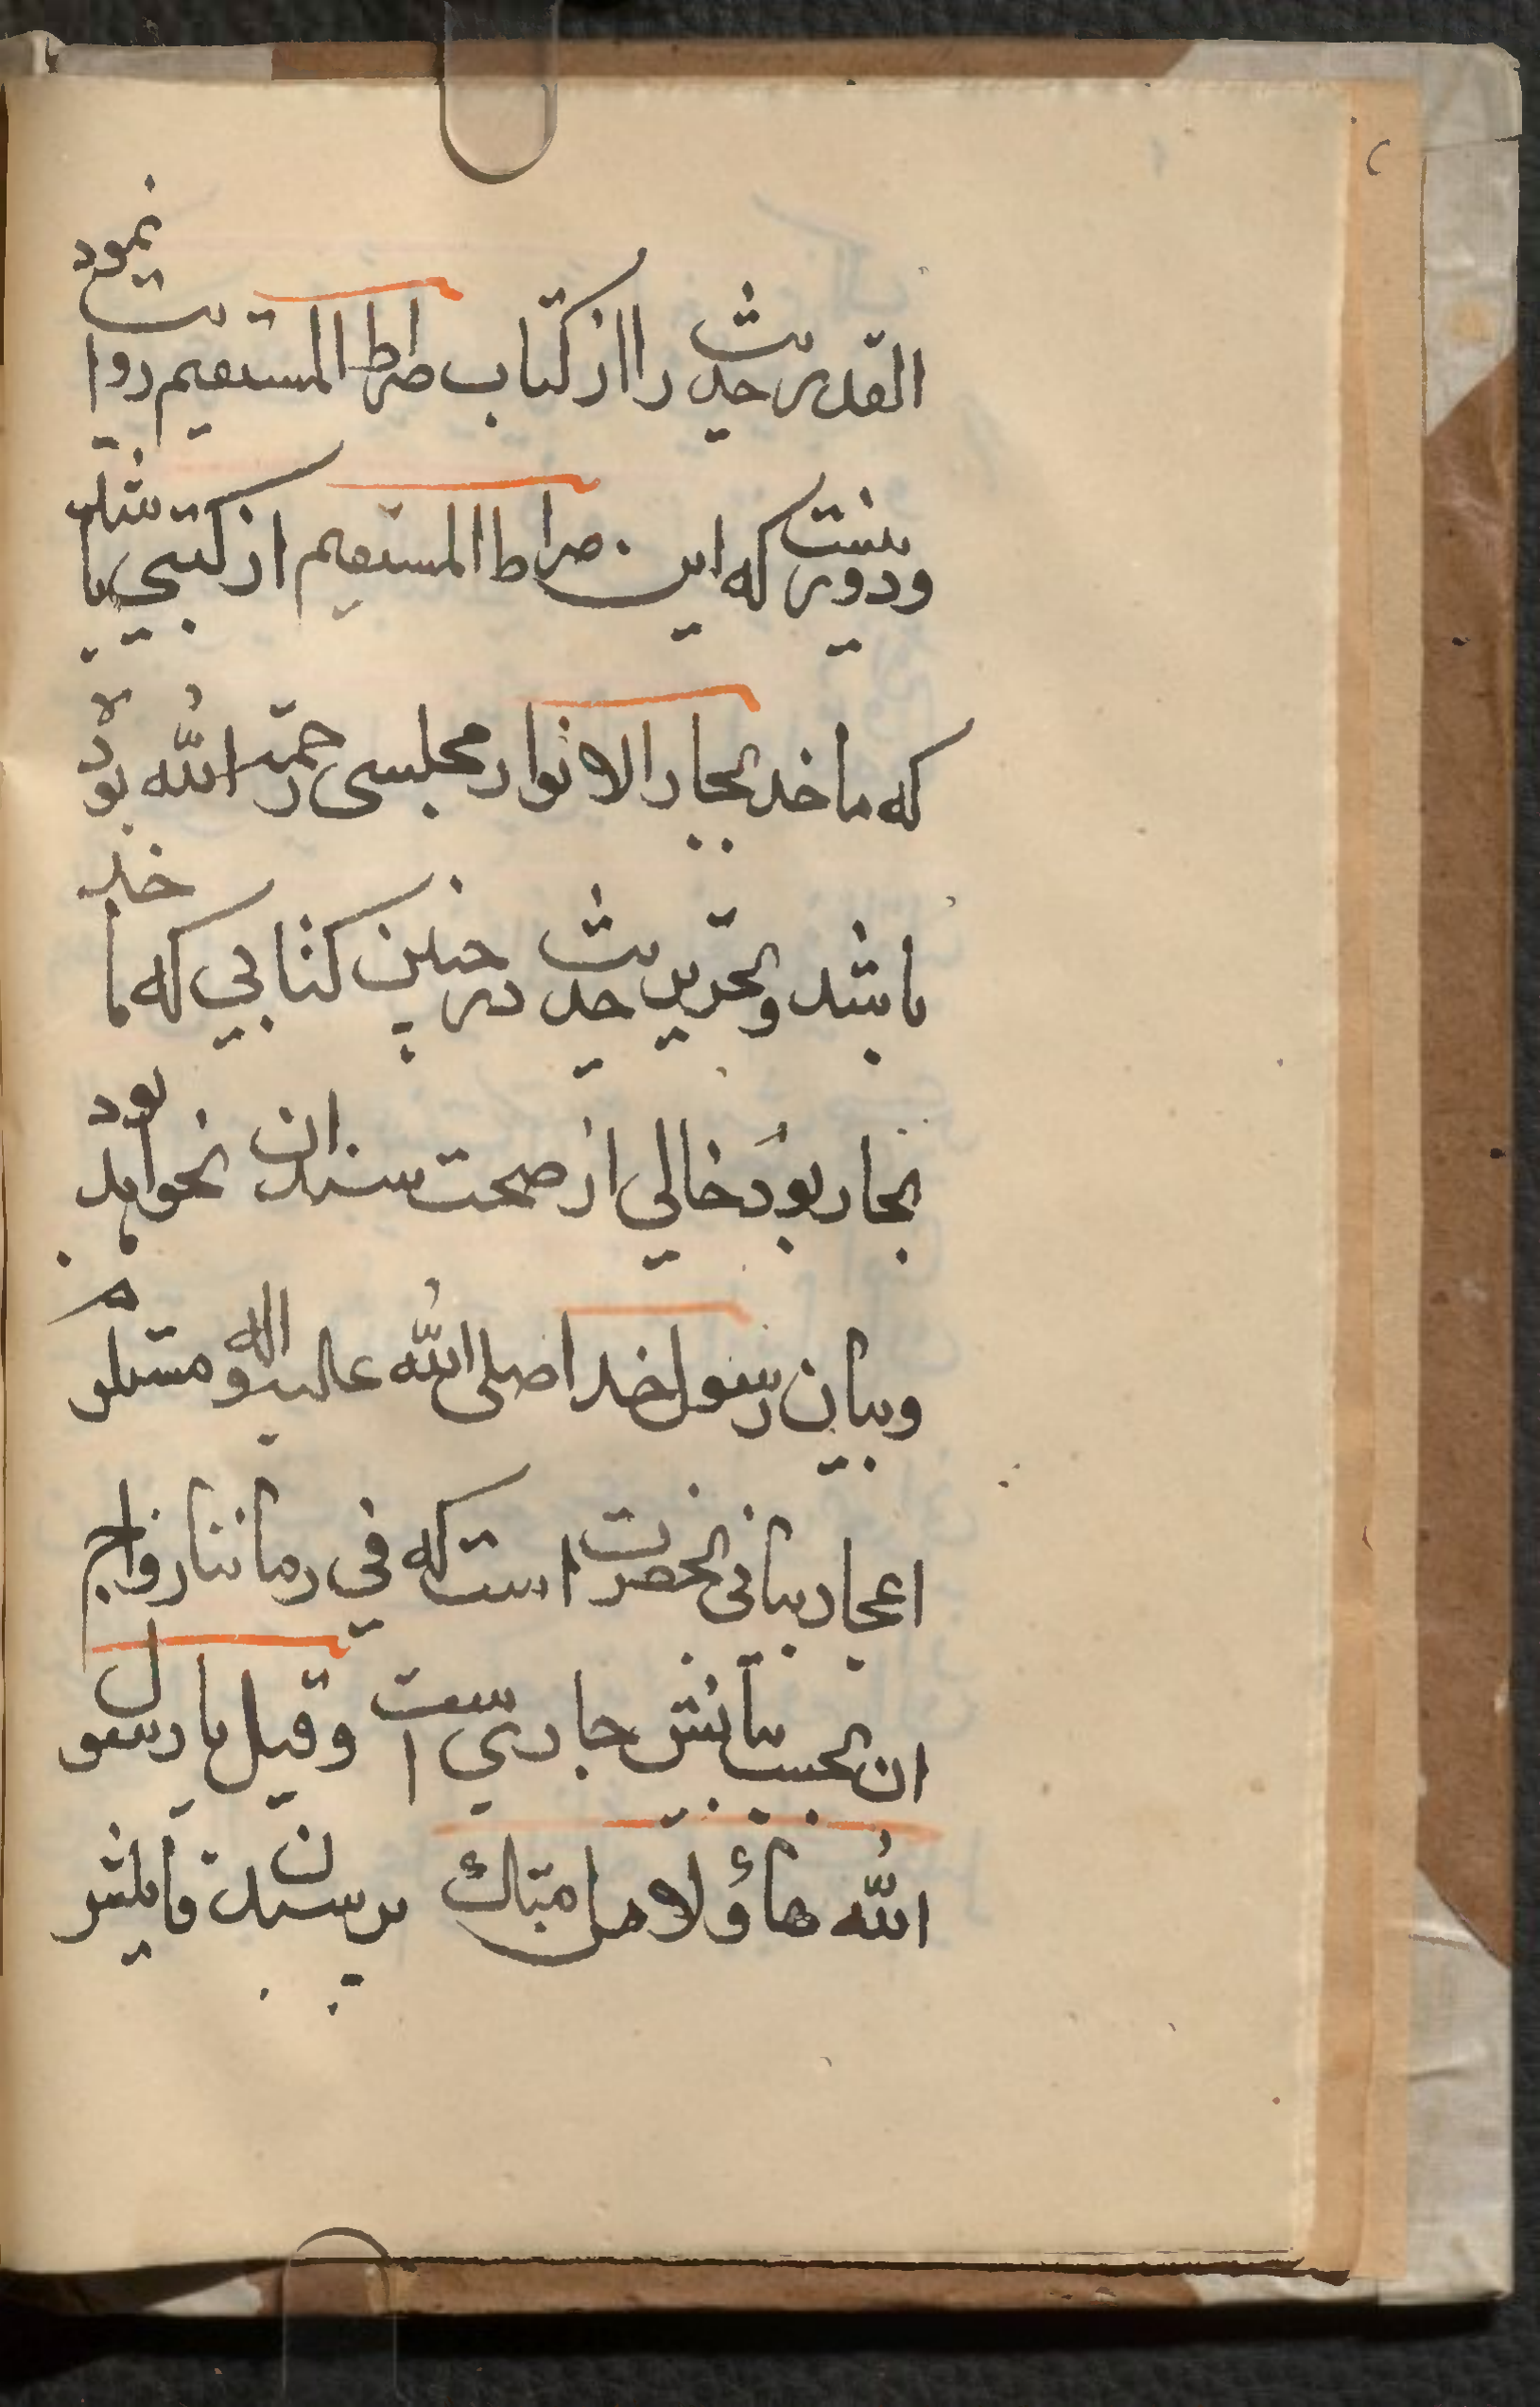 القدر حدیث را از کتاب صراط المستقیم روایت نمود
ودور نیست که این صراط المستقیم از کتبی باشد
که ماخذ بحار الانوار مجلسی رحمة الله بوده
باشد و تحریر حدیث در چنین کتابی که ماخذ
بحار بود خالی از صحت سند ان نخواهد بود
و بیان رسول خدا صلی الله علیه و اله وسلم
اعجاز بیانی انحضرت است که في زماننا رواج
ان بحسب بیانش جاري است وقيل يا رسول
الله هاؤلا من امتك پرسیدن قایلش